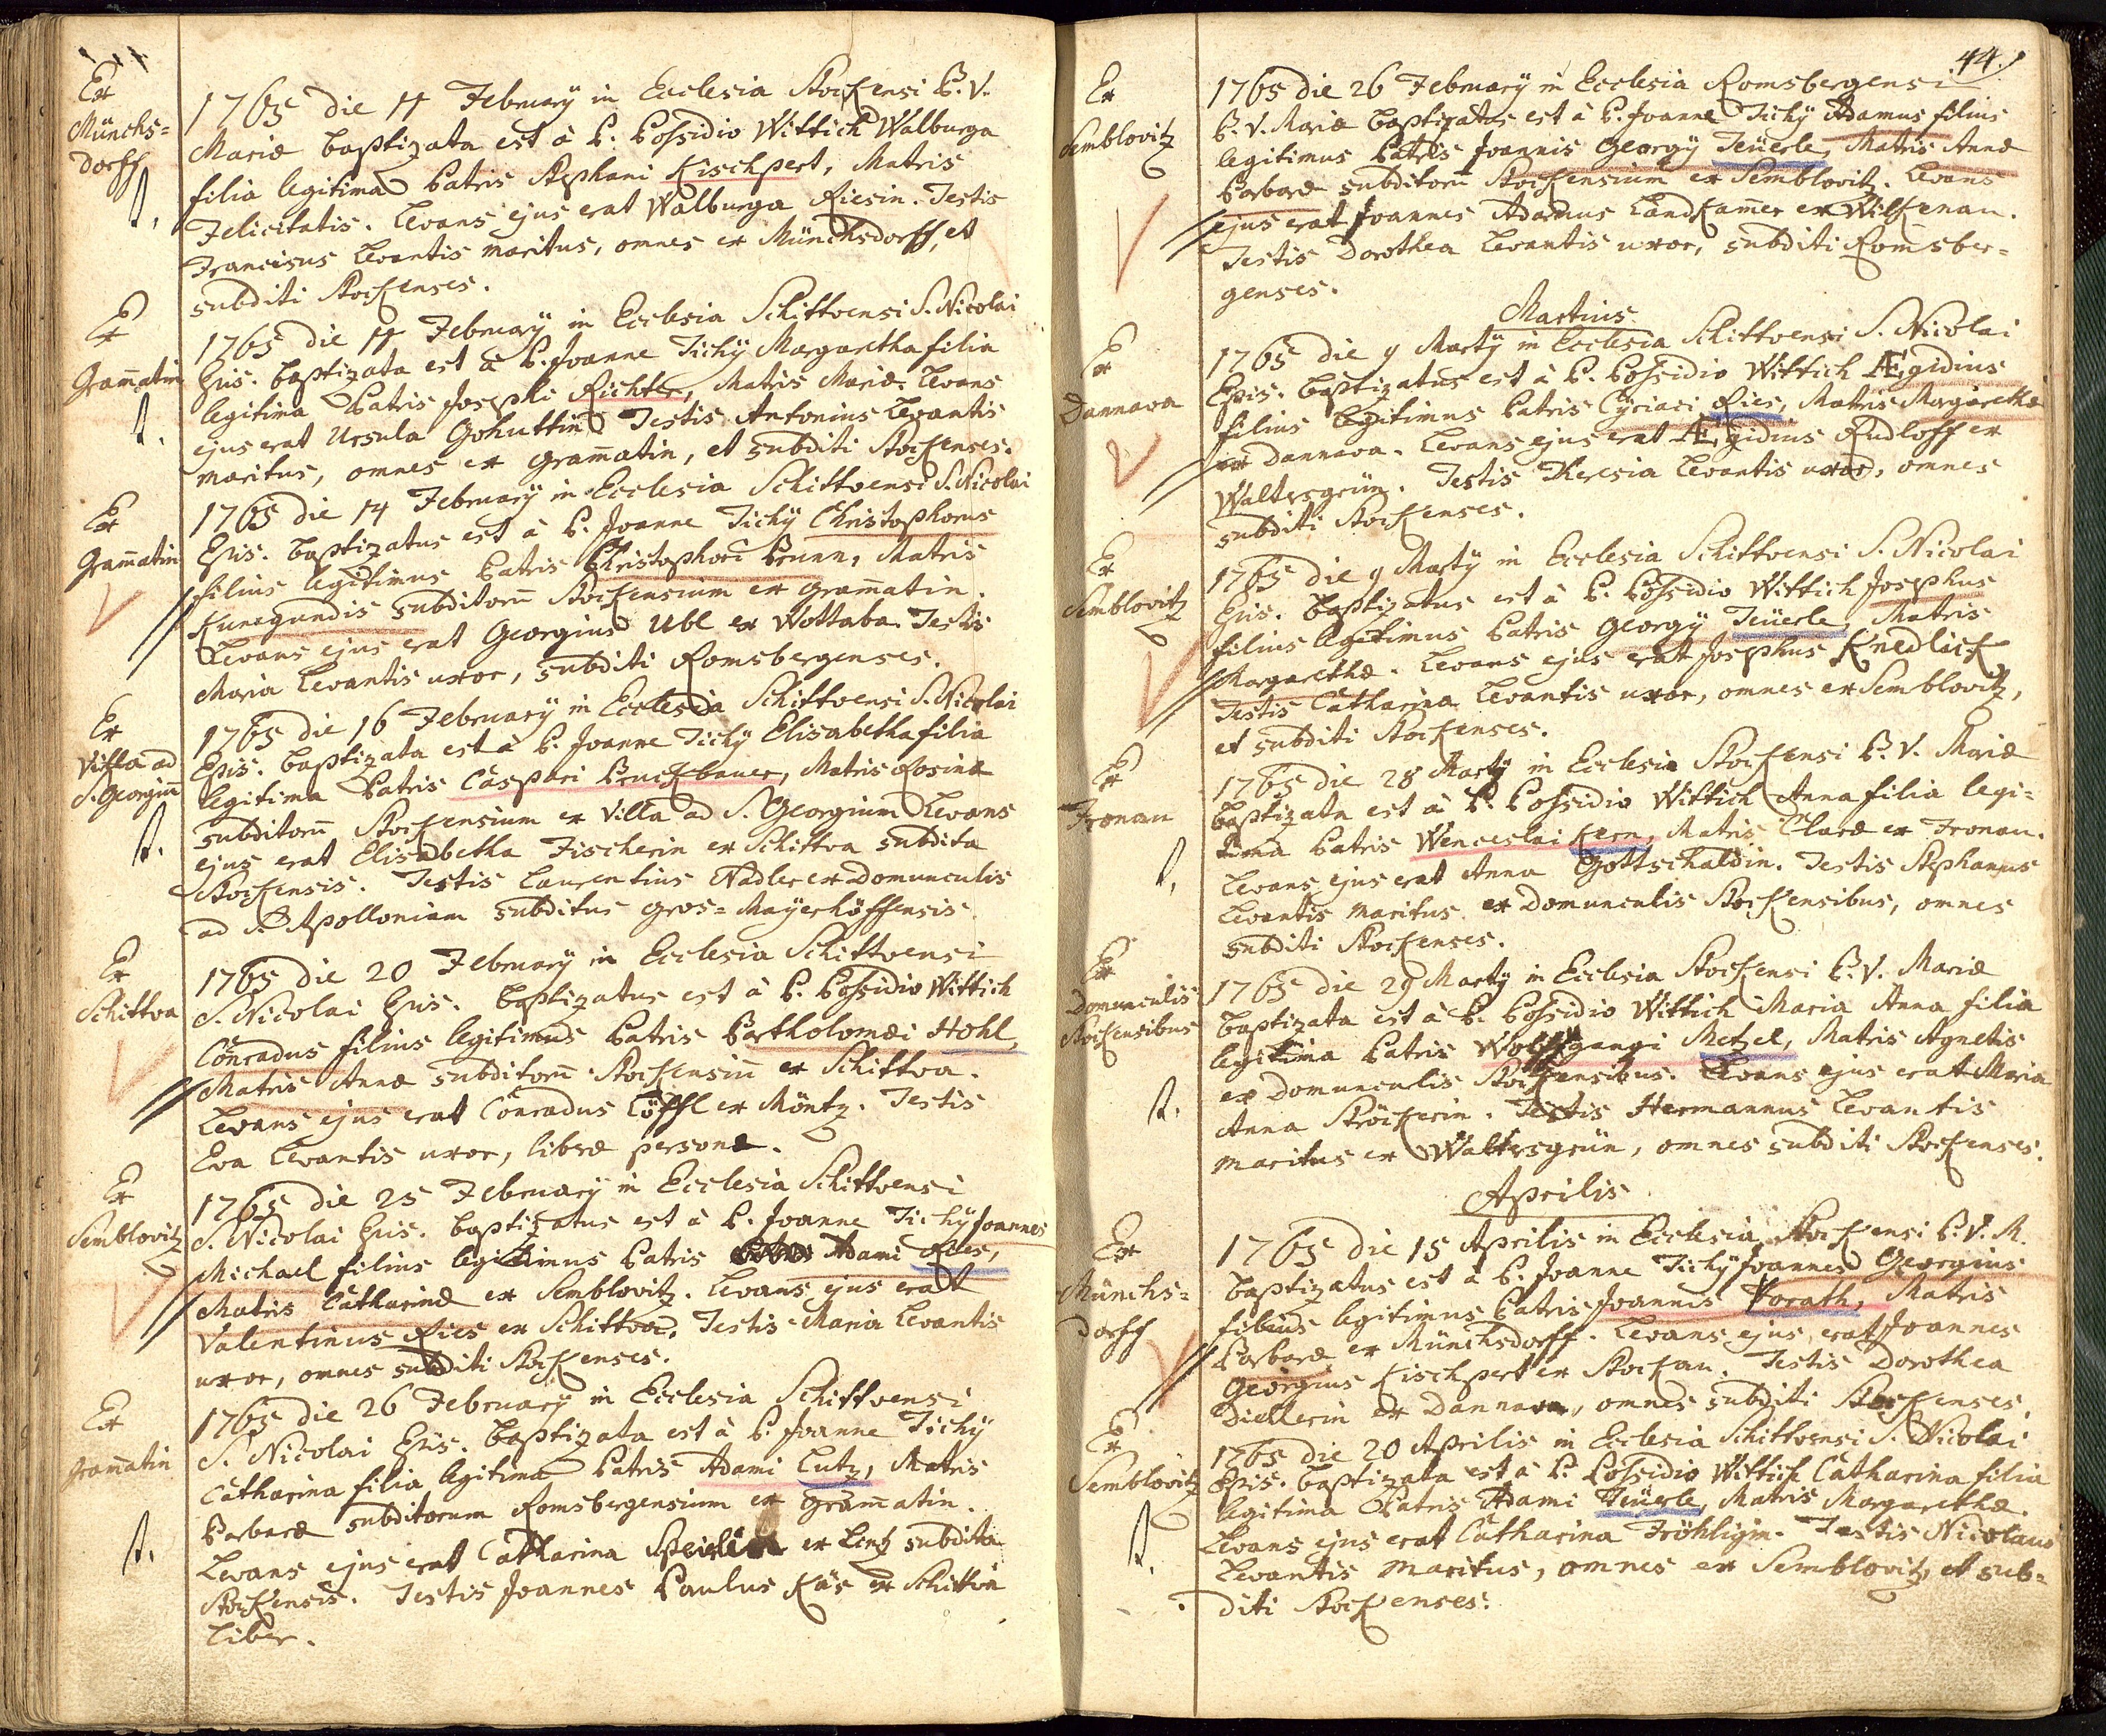 Ex
Münchs=
dorff
1765 die 14 February in Ecclesia Stockensi B. V.
Mariæ baptizata est à P. Possidio Wittich Walburga
filia legitima Patris Stephani Kischpert, Matris
Felicitatis. Levans ejus erat Walburga Riesin. Testis
Franciscus Levantis maritus, omnes ex Münchsdorff, et
subditi Stockenses.
Ex
Gram̄atin
1765 die 14 February in Ecclesia Schittvensi S. Nicolai
Epis. baptizata est à P. Joanne Tichÿ Margaretha filia
legitima Patris Josephi Richter, Matris Mariæ. Levans
ejus erat Ursula Gohuttin. Testis Antonius Levantis
maritus, omnes ex Gram̄atin, et subditi Stockenses.
Ex
Gram̄atin
1765 die 14 February in Ecclesia Schittvensi S. Nicolai
Epis. baptizatus est à P. Joanne Tichÿ Christophorus
filius legitimus Patris Christophori Brunn, Matris
Kunegundis subditorū Stockensium ex Gram̄atin.
Levans ejus erat Georgius Ubl ex Wottaba. Testis
Maria Levantis uxor, subditi Romsbergenses.
Ex
Villa ad
S. Georgiū
1765 die 16 February in Ecclesia Schittvensi S. Nicolai
Epis. baptizata est à P. Joanne Tichÿ Elisabetha filia
legitima Patris Caspari Bruckbauer, Matris Rosinæ
subditorū Stockensium ex Villa ad S. Georgium. Levans
ejus erat Elisabetha Fischerin ex Schittva subdita
Stockensis. Testis Laurentius Nadler ex Domunculis
ad S. Apolloniam subditus Gros=Mayerhöffensis.
Ex
Schittva
1765 die 20 February in Ecclesia Schittvensi
S. Nicolai Epis. baptizatus est à P. Possidio Wittich
Conradus filius legitimus Patris Bartholomæi Hohl,
Matris Annæ subditorū Stockensiū ex Schittva.
Levans ejus erat Conradus Löffl ex Möntz. Testis
Eva Levantis uxor, liberæ personæ.
Ex
Semblovitz
1765 die 25 February in Ecclesia Schittvensi
S. Nicolai Epis. baptizatus est à P. Joanne Tichÿ Joannes
Michael filius legitimus Patris Adami Ries,
Matris Catharinæ ex Semblovitz. Levans ejus erat
Valentinus Ries ex Schittva. Testis Maria Levantis
uxor, omnes subditi Stockenses.
Ex
Gram̄atin
1765 die 26 February in Ecclesia Schittvensi
S. Nicolai Epis. baptizata est à P. Joanne Tichÿ
Catharina filia legitima Patris Adami Lutz, Matris
Barbaræ subditorum Romsbergensium ex Gram̄atin.
Levans ejus erat Catharina ex Lintz subdita
Stockensis. Testis Joannes Paulus Käs ex Schittva
liber.
44.
Ex
Semblovitz
1765 die 26 February in Ecclesia Romsbergensi
B. V. Mariæ baptizatus est à P. Joanne Tichÿ Adamus filius
legitimus Patris Joannis Georgÿ Teüerle, Matris Annæ
Barbaræ subditorū Stockensium ex Semblovitz. Levans
ejus erat Joannes Adamus Landkam̄er ex Wilkenau.
Testis Dorothea Levantis uxor, subditi Romsber=
genses.
Martius
Ex
Dannava
1765 die 9 Martÿ in Ecclesia Schittvensi S. Nicolai
Epis. baptizatus est à P. Possidio Wittich Ægidius
filius legitimus Patris Cÿriaci Ries, Matris Margarethæ
ex Dannava. Levans ejus erat Ægidius Rudloff ex
Waltersgrün. Testis Theresia Levantis uxor, omnes
subditi Stockenses.
Ex
Semblovitz
1765 die 9 Martÿ in Ecclesia Schittvensi S. Nicolai
Epis. baptizatus est à P. Possidio Wittich Josephus
filius legitimus Patris Georgÿ Teüerle, Matris
Margarethæ. Levans ejus erat Josephus Knedlick
Testis Catharina Levantis uxor, omnes ex Semblovitz,
et subditi Stockenses.
Ex
Fronau
1765 die 28 Martÿ in Ecclesia Stockensi B. V. Mariæ
baptizata est à P. Possidio Wittich Anna filia legi=
tima Patris Wenceslai Kern, Matris Claræ ex Fronau.
Levans ejus erat Anna Gottschaldin. Testis Stephanus
Levantis maritus ex Domunculis Stockensibus, omnes
subditi Stockenses.
Ex
Domunculis
Stockensibus
1765 die 29 Martÿ in Ecclesia Stockensi B. V. Mariæ
baptizata est à P. Possidio Wittich Maria Anna filia
legitima Patris Wolffgangi Metzel, Matris Agnetis
ex Domunculis Stockensibus. Levans ejus erat Maria
Anna Ströckerin. Testis Hermannus Levantis
maritus ex Waltersgrün, omnes subditi Stockenses.
Aprilis
Ex
Münchs=
dorff
1765 die 15 Aprilis in Ecclesia Stockensi B. V. M.
baptizatus est à P. Joanne Tichÿ Joannes Georgius
filius legitimus Patris Joannis Vorath, Matris
Barbaræ ex Münchsdorff. Levans ejus erat Joannes
Georgius Kischpert ex Stockau. Testis Dorothea
Diellerin ex Dannava, omnes subditi Stockenses.
Ex
Semblovitz
1765 die 20 Aprilis in Ecclesia Schittvensi S. Nicolai
Epis. baptizata est à P. Possidio Wittich Catharina filia
legitima Patris Adami Teüerle, Matris Margarethæ.
Levans ejus erat Catharina Fröhligin. Testis Nicolaus
Levantis maritus, omnes ex Semblovitz, et sub=
diti Stockenses.